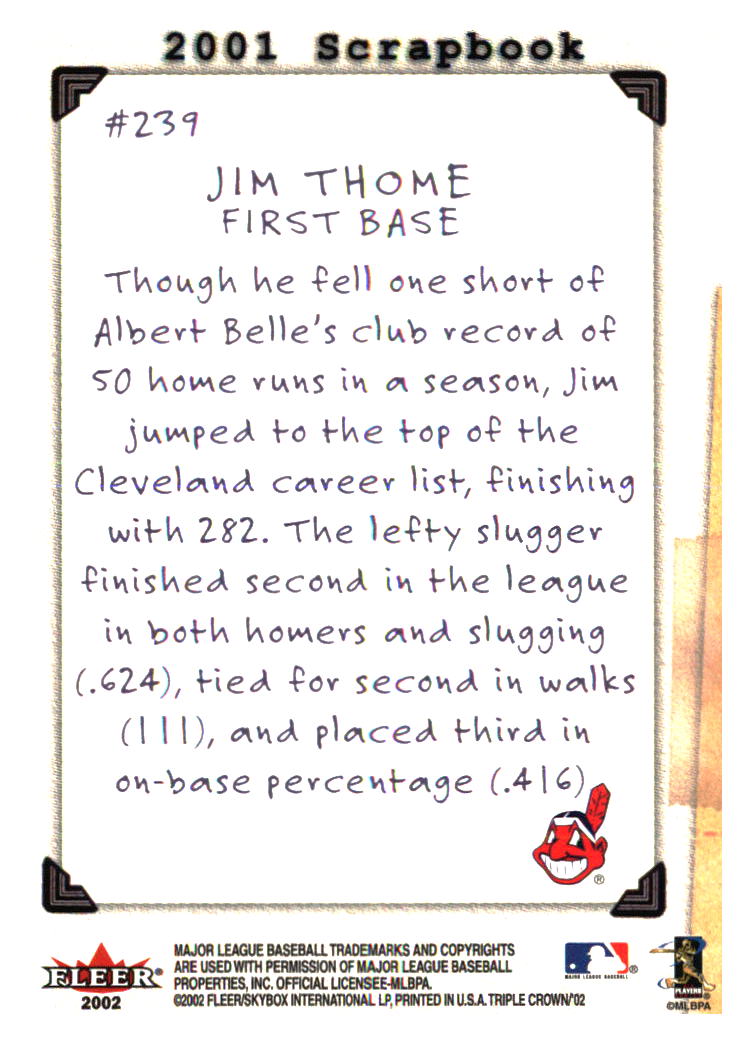 2001 Scrapbook
#239
JIM THOME
FIRST BASE
Though he fell one short of
Albert Belle's club record of
50 home runs in a season, Jim
jumped to the top of the
Cleveland career list, finishing
with 282. The lefty slugger
finished second in the league
in both homers and slugging
(.624), tied for second in walks
(111), and placed third in
on-base percentage (.416)
®
FLEER®
2002
MAJOR LEAGUE BASEBALL TRADEMARKS AND COPYRIGHTS
ARE USED WITH PERMISSION OF MAJOR LEAGUE BASEBALL
PROPERTIES, INC. OFFICIAL LICENSEE-MLBPA.
©2002 FLEER/SKYBOX INTERNATIONAL LP, PRINTED IN U.S.A. TRIPLE CROWN/'02
MAJOR LEAGUE BASEBALL®
PLAYERS
©MLBPA